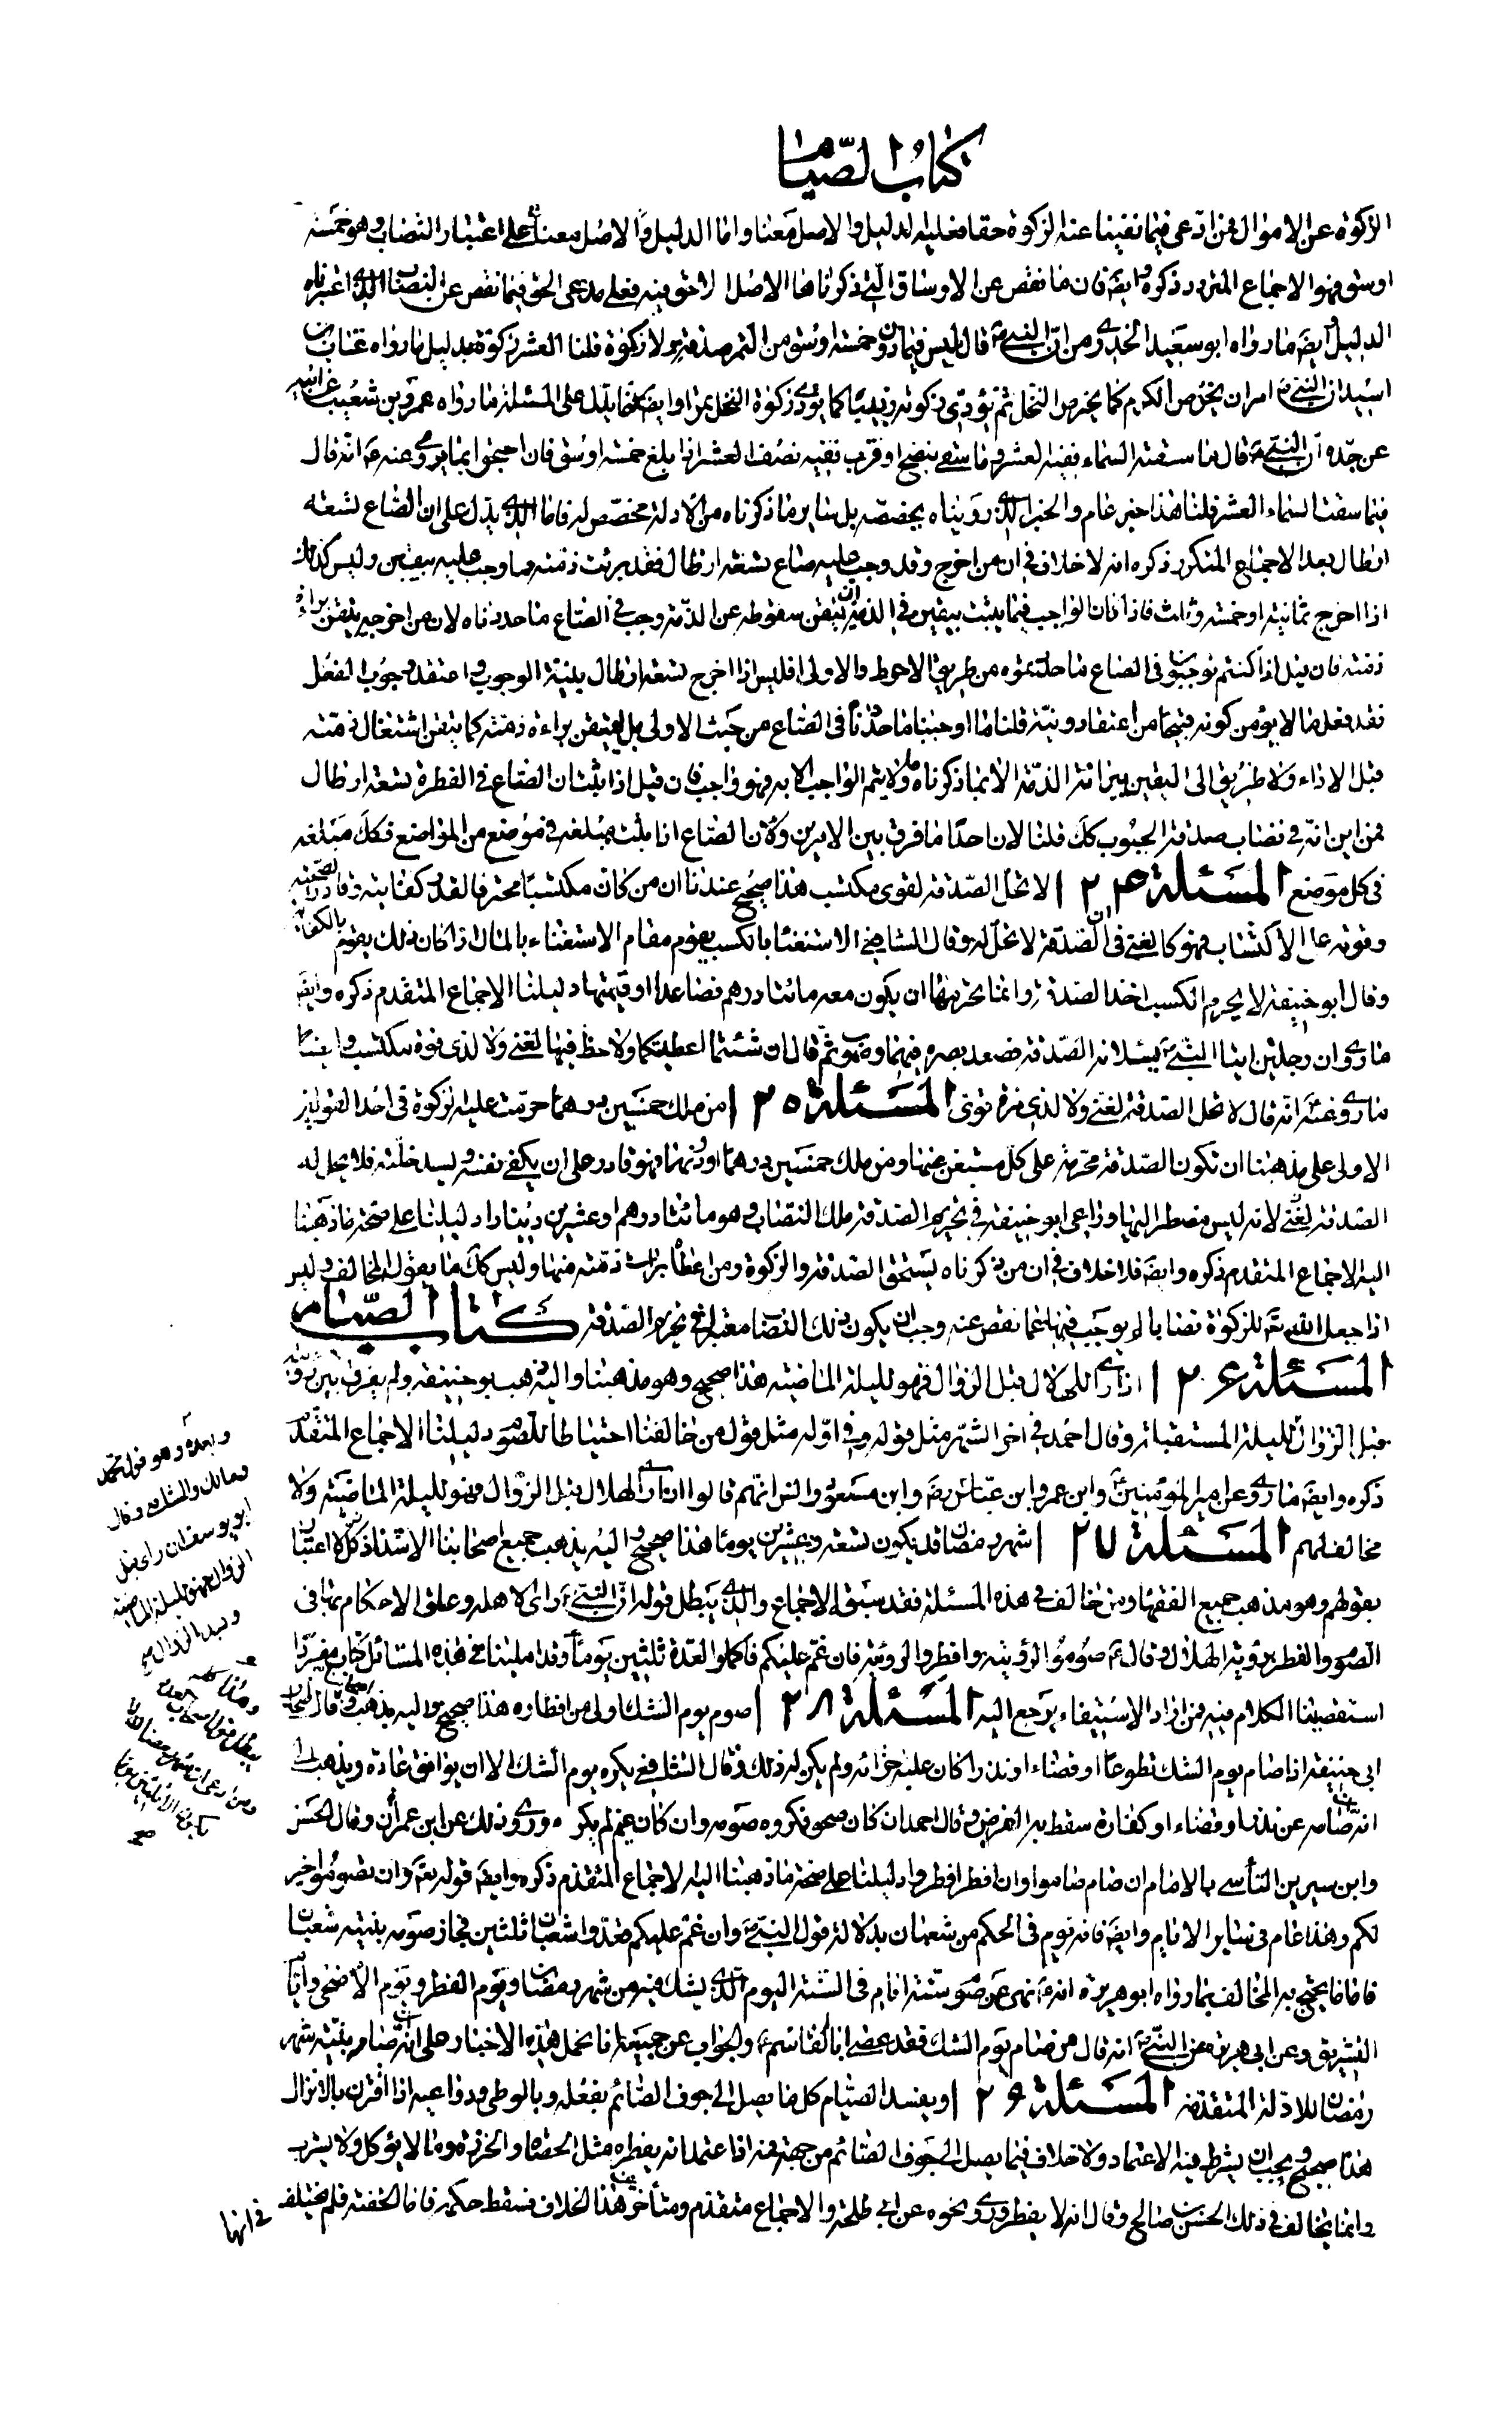 كتاب الصيام
الزكوة عن الاموال فمن ادعى فيما نفينا عنه الزكوة حقا فعليه الدليل والاصل معنا واما الدليل على اعتبار النصاب وهو خمسة
اوسق فهو الاجماع المتردد ذكره وايضا فان ما نقص عن الاوساق التي ذكرناها الاصل الا حق فيه فعلى مدعى الحق فيما نقص عن النصاب الذي اعتبرناه
الدليل وايضا ما رواه ابو سعيد الخدري من ان النبي قال ليس فيما دون خمسة اوسق من التمر صدقة ولا زكوة قلنا العشر زكوة بدليل ما رواه عتاب بن
اسيد ان النبي امر ان يخرص الكرم كما يخرص النخل ثم يؤدى زكوته زبيبا كما يؤدى زكوة النخل تمرا وايضا مما يدل على المسئلة ما رواه عمرو بن شعيب عن ابيه
عن جده ان النبي قال ما سقته السماء ففيه العشر وما سقى بنضح او قرب ففيه نصف العشر اذا بلغ خمسة اوسق فان احتجوا بما يروى عنه انه قال
فيما سقت السماء العشر قلنا هذا خبر عام والخبر الذي رويناه يخصصه بل ساير ما ذكرناه من الادلة مخصص له فاما الذي يدل على ان الصاع تسعة
ارطال بعد الاجماع المتكرر ذكره انه لا خلاف في ان من اخرج وقد وجب عليه صاع تسعة ارطال فقد برئت ذمته مما وجب عليه بيقين وليس كذلك
اذا اخرج ثمانية او خمسة وثلث فاذا كان الواجب فيما يثبت بيقين في الذمة ان تيقن سقوطه عن الذمة وجب في الصاع ما حددناه لان من اخرجه تيقن براءة
ذمته فان قيل اذا كنتم توجبون في الصاع ما حددتموه من طريق الاحوط والاولى افليس اذا اخرج تسعة ارطال بنية الوجوب واعتقد وجوب الفعل
فقد فعل ما لا يؤمن كونه قبيحا من اعتقاد ونية قلنا ما اوجبنا ما حددناه في الصاع من حيث الاولى بل لتيقن براءة ذمته كما تيقن اشتغال ذمته
قبل الاداء ولا طريق الى اليقين ببراءة الذمة الا بما ذكرناه وما لا يتم الواجب الا به فهو واجب فان قيل اذا ثبت ان الصاع في الفطرة تسعة ارطال
فمن اين انه في نصاب صدقة الحبوب كك قلنا لان احدا ما فرق بين الامرين ولان الصاع اذا ثبت مبلغه في موضع من المواضع فكك مبلغه
في كل موضع المسئلة ١٢٤ لا تحل الصدقة لقوى مكتسب هذا صحيح عندنا ان من كان مكتسبا محترفا لقدر كفايته وقادرا لصحته
وقوته على الاكتساب فهو كالغنى في ان الصدقة لا تحل له وقال الشافعي الاستغناء بالكسب يقوم مقام الاستغناء بالمال اذا كان ذلك يقوم بالكفاية
وقال ابو حنيفة لا يحرم الكسب اخذ الصدقة وانما يحرمها ان يكون معه مائتا درهم فصاعدا او قيمتها دليلنا الاجماع المتقدم ذكره وايضا
ما روى ان رجلين اتيا النبي يسئلانه الصدقة فصعد بصره فيهما وصوبه ثم قال ان شئتما اعطيتكما ولا حظ فيها لغنى ولا لذي قوة مكتسب وايضا
ما روى عنه انه قال لا تحل الصدقة لغنى ولا لذي مرة قوى المسئلة ١٢٥ من ملك خمسين درهما حرمت عليه الزكوة في احد القولين
الاولى على مذهبنا ان تكون الصدقة محرمة على كل مستغن عنها ومن ملك خمسين درهما او دونها فهو قادر على ان يكفى نفسه ويسد خلته فلا تحل له
الصدقة لغنى لانه ليس مضطرا اليها وراعى ابو حنيفة في تحريم الصدقة ملك النصاب وهو مائتا درهم او عشرين دينارا دليلنا على صحة ما ذهبنا
اليه الاجماع المتقدم ذكره وايضا فلا خلاف في ان من ذكرناه يستحق الصدقة والزكوة ومن اعطاه برات ذمته منها وليس كك ما يقوله المخالف وليس
اذا جعل الله للزكوة نصابا لم يوجب فيها عما نقص عنه وجب ان يكون ذلك النصاب معتبرا في تحريم الصدقة كتاب الصيام
المسئلة ١٢٦ اذا راى الهلال قبل الزوال فهو لليلة الماضية هذا صحيح وهو مذهبنا واليه ذهب ابو حنيفة ولم يفرق بين رؤيته
قبل الزوال لليلة المستقبلة وقال احمد في اخر الشهر مثل قوله وفي اوله مثل قول من خالفنا احتياطا للصوم دليلنا الاجماع المتقدم
ذكره وايضا ما روى عن امير المؤمنين وابن عمر وابن عباس وابن مسعود وانس انهم قالوا ان راى الهلال قبل الزوال فهو لليلة الماضية ولا
مخالف لهم المسئلة ١٢٧ شهر رمضان قد يكون تسعة وعشرين يوما هذا صحيح واليه يذهب جميع اصحابنا الا شذاذ لا اعتبار
بقولهم وهو مذهب جميع الفقهاء ومن خالف في هذه المسئلة فقد سبقه الاجماع والذي يبطل قوله ان النبي راى الاهلة وعلق الاحكام بها في
الصوم والفطر برؤية الهلال وقال صوموا لرؤيته وافطروا لرؤيته فان غم عليكم فاكملوا العدة ثلثين يوما وقد املينا في هذه المسائل كتابا مفردا
استقصينا الكلام فيه فمن اراد الاستيفاء يرجع اليه المسئلة ١٢٨ صوم يوم الشك اولى من افطاره هذا صحيح واليه يذهب اصحابنا وقال اصحاب
ابي حنيفة اذا صام يوم الشك تطوعا او قضاء او نذرا كان عليه جزائه ولم يكن له ذلك وقال الشافعي يكره يوم الشك الا ان يوافق عادة ويذهب الى
انه ان صامه عن نذر او قضاء او كفارة سقط به الفرض وقال احمد ان كان صحو فكروه صومه وان كان غيم لم يكره وروى ذلك عن ابن عمر وقال الحسن
وابن سيرين التأسى بالامام ان صام صاموا وان افطر افطروا دليلنا على صحة ما ذهبنا اليه الاجماع المتقدم ذكره وايضا قوله وان تصوموا خير
لكم وهذا عام في ساير الايام وايضا فانه يوم في الحكم من شعبان بدلالة قول النبي وان غم عليكم فعدوا شعبان ثلثين فجاز صومه بنية شعبان
فاما ما يحتج به المخالف فيما رواه ابو هريرة انه نهى عن صوم ستة ايام في السنة اليوم الذي يشك فيه من شهر رمضان ويوم الفطر ويوم الاضحى وايام
التشريق وعن ابي هريرة عن النبي انه قال من صام يوم الشك فقد عصى ابا القاسم والجواب عن جميعه انا نحمل هذه الاخبار على انه صام بنية شهر
رمضان للادلة المتقدمة المسئلة ١٢٩ ويفسد الصيام كل ما يصل الى جوف الصائم بفعله وبالوطى ودواعيه اذا اقترن بالانزال
هذا صحيح ويجب ان يشترط فيه الاعتماد ولا خلاف فيما يصل الى جوف الصائم من جهة فمه اذا اعتمد انه يفطره مثل الحصاة والخرزة وما لا يؤكل ولا يشرب
وانما يخالف في ذلك الحسن بن صالح وقال انه لا يفطر وروى نحوه عن ابي طلحة والاجماع متقدم ومتأخر عن هذا الخلاف فسقط حكمه فاما الحقنة فلم يختلف
في انها
وبعده وهو قول محمد
ومالك والشافعي وقال
ابو يوسف ان راى قبل
الزوال فهو لليلة الماضية
وبعد الزوال